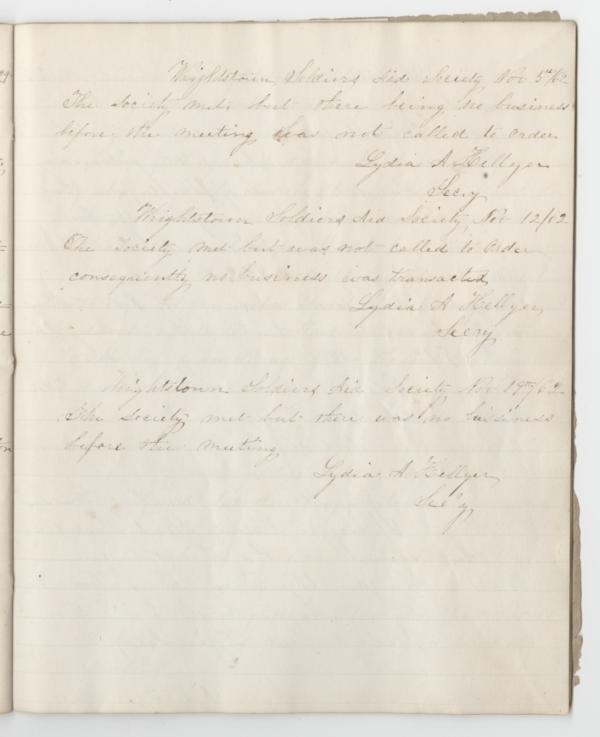 Wrightstown Soldiers Aid Society Nov 5th/62
The Society met but there being no business
before the meeting was not called to order
Lydia A Hellyer
Secy
Wrightstown Soldiers Aid Society Nov 12/62
The Society met but was not called to order
consequently no business was transacted
Lydia A Hellyer
Secry
Wrightstown Soldiers Aid Society Nov 19th/62
The Society met but there was no business
before the meeting
Lydia A Hellyer
Sec'y